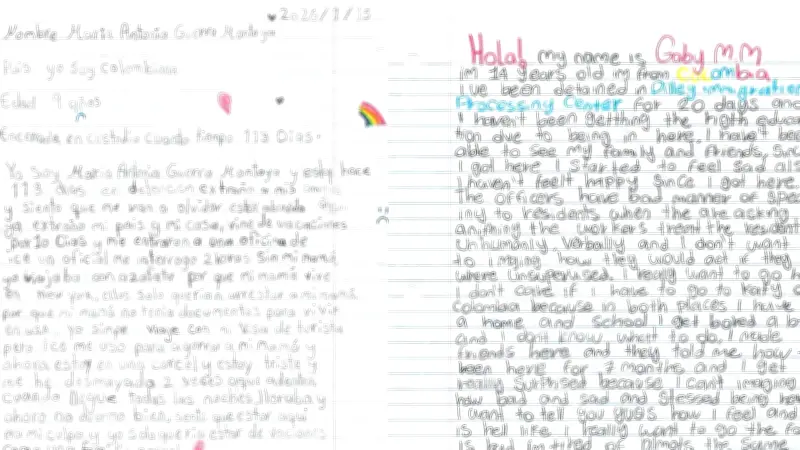 2026/1/15
Nombre Maria Antonia Guerra Montoya
País yo soy colombiana
Edad 9 años
Encerrada en custodia cuanto tiempo 113 Dias.
Yo Soy Maria Antonia Guerra Montoya y estoy hace
113 dias en detencion extraño a mis
y siento que me van a olvidar estando
ya extraño mi pais y mi casa, vine de vacaciones
por 10 Dias y me entraron a una oficina de
ice un oficial me interrogo 2 horas Sin mi mamá
yo viajaba con azafata por que mi mamá vive
en New york, ellos solo querian arrestar a mi mamá
por que mi mamá no tenia documentos para vivir
en usa, yo simpre viage con mi Visa de turista
pero ice me uso para agarrar a mi mamá y
ahora estoy en una carcel y estoy triste y
me he desmayado 2 veces aqui adentro
cuando llegue todas las noches lloraba y
ahora no duermo bien, senti que estar aqui
era mi culpa y yo solo queria estar de vaciones
como una
Hola! my name is Gaby M M
im 14 years old im from Colombia
I've been detained in Dilley immigration
Processing Center for 20 days and
I haven't been getthing the
tion due to being in here. I haven't
able to see my family and friends, Sinc
I got here I Started to feel Sad
I haven't feelt happy Since I got here.
The officers have bad manner of spea
ing to residents when the are acking
anithing the workers treat the resident
Unhumanly, verbally and I don't want
to imging how they would act if they
where Unsupervused. I really want to go h
I don't care if I have to go to
Colombia because in both places I have
a home and school I get bored a lo
and I don't know what to do, I made
friends here and they told me how
been here for 7 months and I get
really Surprised because I cant imaging
how bad and said and stessed being her
I want to tell you guys how I feel and
is hell like I really want to go the
is bad im tired of almots the same